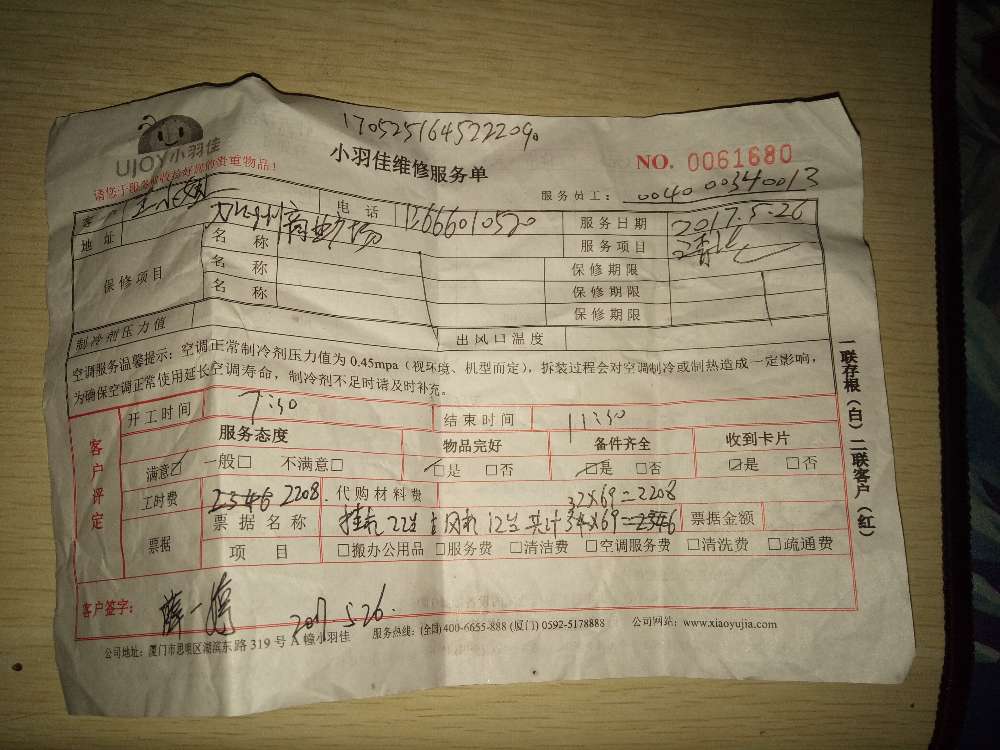 170525164522209
UJOY小羽佳
小羽佳维修服务单
NO. 0061680
请您于服务前收拾好您的贵重物品！
服务员工： 00400 00340013
客户 电话 13666010520 服务日期 2017.5.26
地址 商业广场 服务项目 清洗
保修项目 名称 保修期限
名称 保修期限
名称 保修期限
制冷剂压力值 出风口温度
空调服务温馨提示：空调正常制冷剂压力值为 0.45mpa（视环境、机型而定），拆装过程会对空调制冷或制热造成一定影响，
为确保空调正常使用延长空调寿命，制冷剂不足时请及时补充。
客户评定
开工时间 7:30 结束时间 11:30
服务态度 物品完好 备件齐全 收到卡片
满意☑ 一般□ 不满意□ ☑是 □否 ☑是 □否 ☑是 □否
工时费 2346 2208. 代购材料费 32×69=2208
票据 票据名称 挂机22台 12台 共计34×69=2346 票据金额
项目 □搬办公用品 □服务费 □清洁费 □空调服务费 □清洗费 □疏通费
客户签字： 薛一 2017.5.26.
公司地址：厦门市思明区湖滨东路 319 号 A 幢小羽佳 服务热线：(全国)400-6655-888 (厦门) 0592-5178888 公司网站：www.xiaoyujia.com
一联存根（白）二联客户（红）